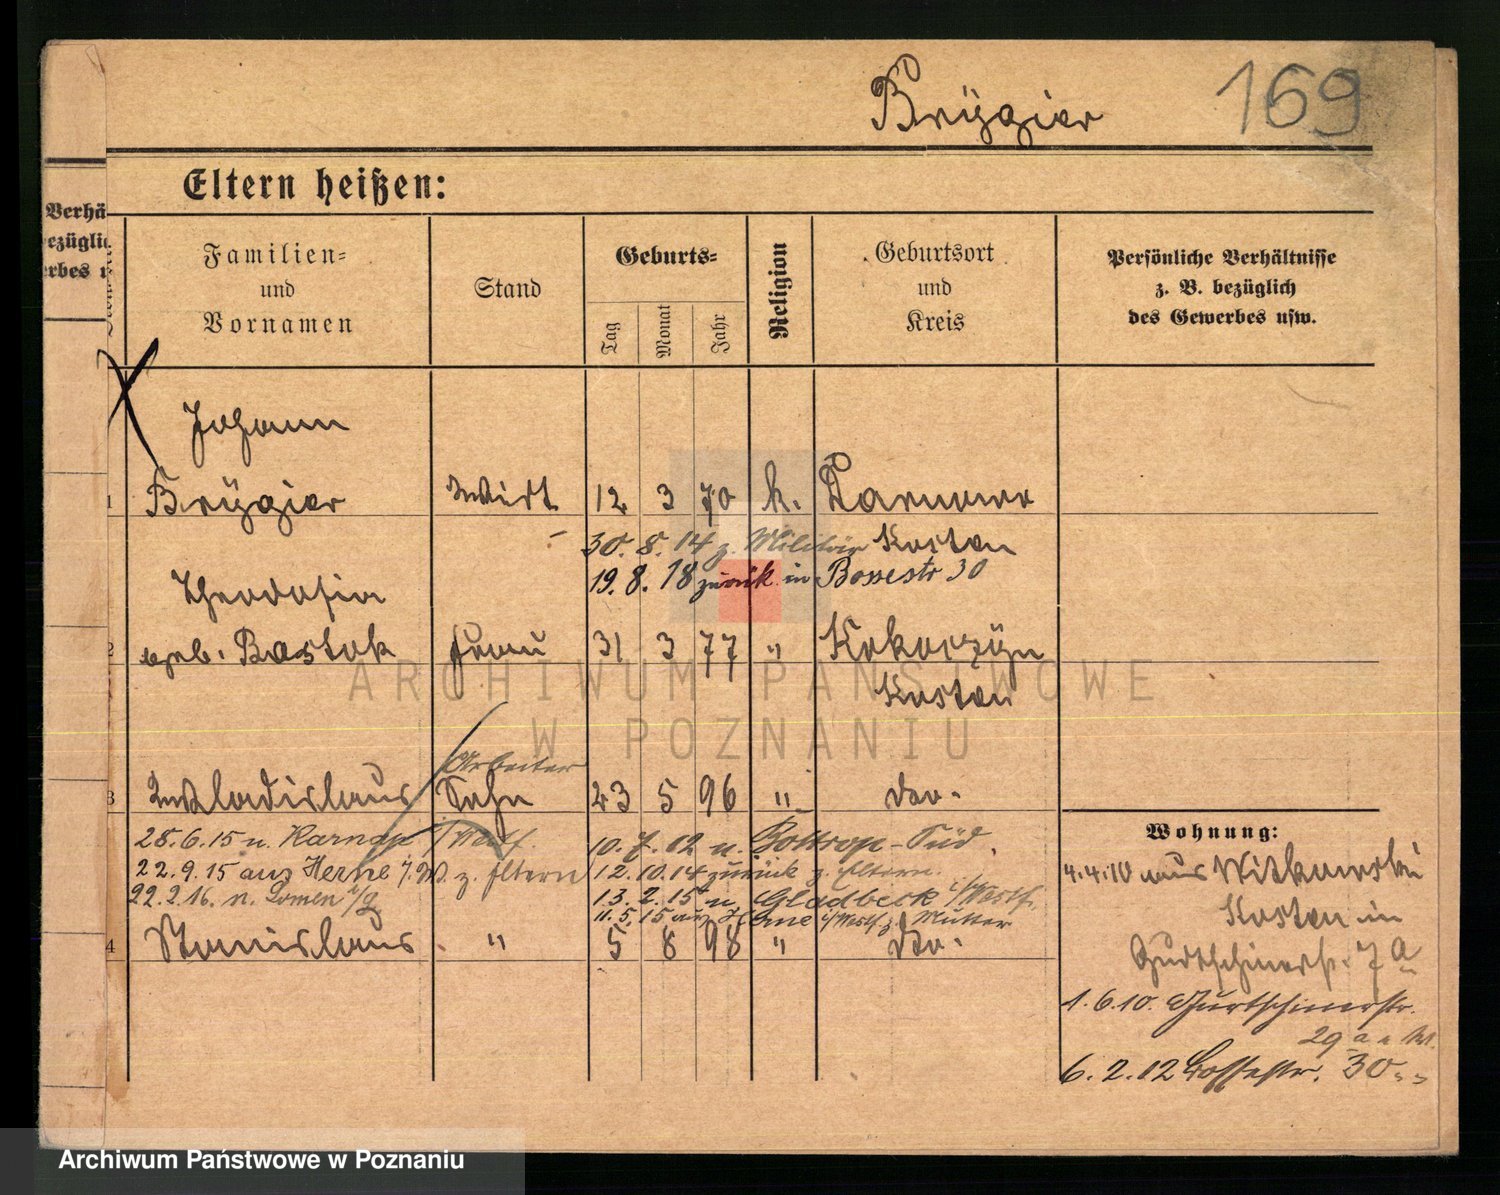 Brÿgier 169
Eltern heißen:
Verhä
ezüglic
erbes u
Familien=
und
Vornamen
Stand
Geburts=
Tag
Monat
Jahr
Religion
Geburtsort
und
Kreis
Persönliche Verhältnisse
z. B. bezüglich
des Gewerbes usw.
Johann
1 Brÿgier Wirt 12 3 70 k.
Kosten
30. 8. 14 z. Militär
19. 8. 18 zurük in Bossestr 30
Theodosia
2 geb. Bastok Frau 31 3 77 " Kokorzÿn
Kosten
Arbeiter
3 Wladislaus Sohn 23 5 96 " do.
28.6.15 n. Karnap i/Westf.
22.9.15 aus Herne i/W. z. Eltern
22.2.16. n.
10. 7. 12 n. Bottrop-Süd.
12.10.14 zurück z. Eltern.
13.2.15 n Gladbeck i/Westf.
11.5.15 aus Herne i/Westf z. Mutter
4 Stanislaus " 5 8 98 " do.
Wohnung:
4.4.10 aus Witkowski
Kosten in
Gurtschinerstr. 7 a
1.6.10. Gurtschinerstr.
29 a
6.2.12 Bossestr. 30
ARCHIWUM PAŃSTWOWE
W POZNANIU
Archiwum Państwowe w Poznaniu